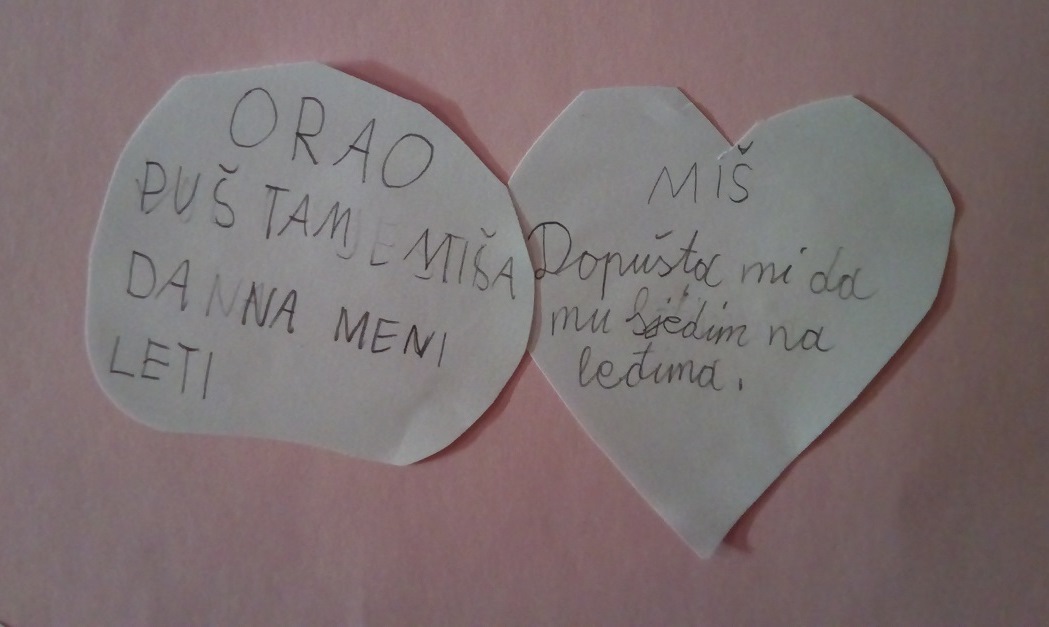 ORAO
PUŠTAM MIŠA
DA NA MENI
LETI
MIŠ
Dopušta mi da
mu sjedim na
leđima.